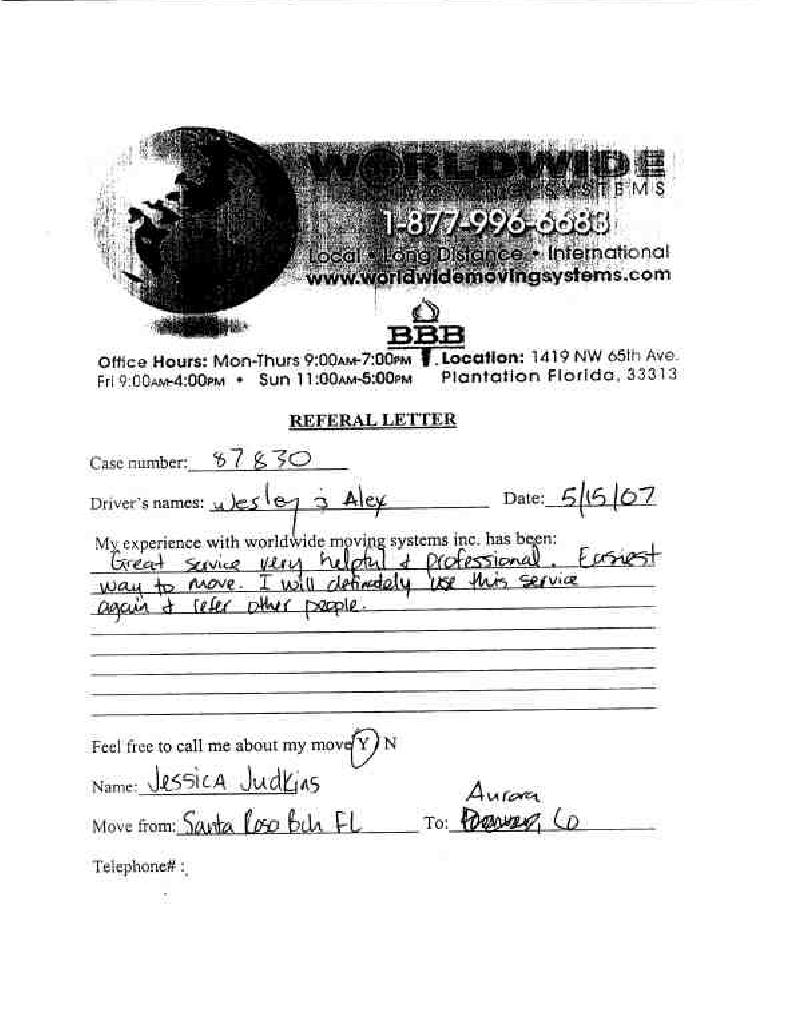 WORLDWIDE
MOVING SYSTEMS
1-877-996-6683
Local • Long Distance • International
www.worldwidemovingsystems.com
BBB
Office Hours: Mon-Thurs 9:00AM-7:00PM
Fri 9:00AM-4:00PM • Sun 11:00AM-5:00PM
Location: 1419 NW 65th Ave.
Plantation Florida, 33313
REFERAL LETTER
Case number: 87830
Driver's names: Wesley & Alex Date: 5/15/07
My experience with worldwide moving systems inc. has been:
Great service very helpful & professional. Easiest
way to move. I will definately use this service
again & refer other people.
Feel free to call me about my move Y N
Name: Jessica Judkins
Aurora
Move from: Santa Rosa Bch FL To: CO
Telephone# :